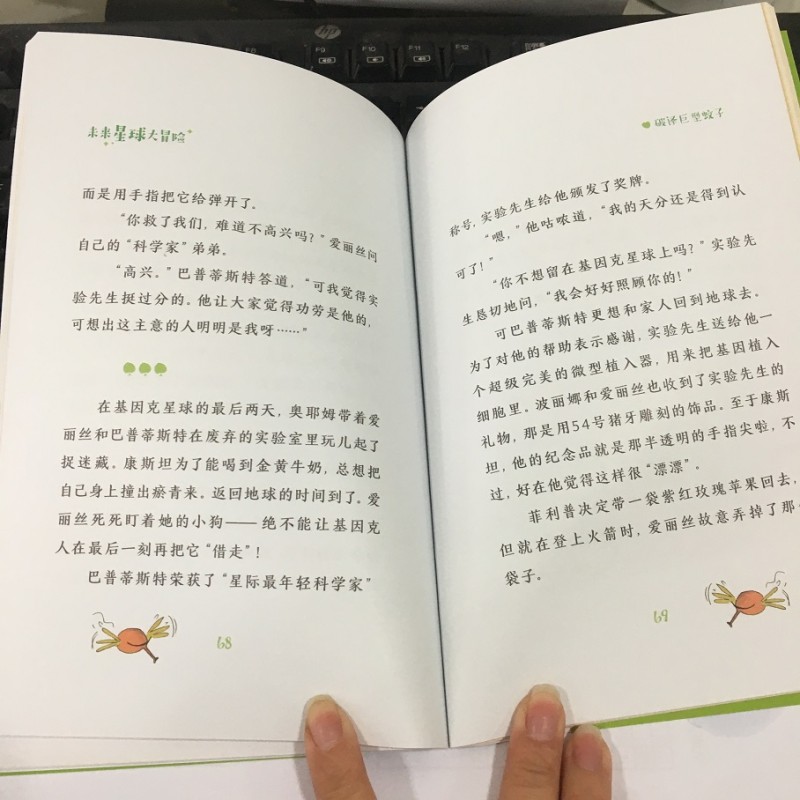 hp
F9
F10
F11
F12
未来星球大冒险
而是用手指把它给弹开了。
“你救了我们，难道不高兴吗？”爱丽丝问
自己的“科学家”弟弟。
“高兴。”巴普蒂斯特答道，“可我觉得实
验先生挺过分的。他让大家觉得功劳是他的，
可想出这主意的人明明是我呀……”
在基因克星球的最后两天，奥耶姆带着爱
丽丝和巴普蒂斯特在废弃的实验室里玩儿起了
捉迷藏。康斯坦为了能喝到金黄牛奶，总想把
自己身上撞出瘀青来。返回地球的时间到了。爱
丽丝死死盯着她的小狗——绝不能让基因克
人在最后一刻再把它“借走”！
巴普蒂斯特荣获了“星际最年轻科学家”
68
破译巨型蚊子
称号，实验先生给他颁发了奖牌。
“嗯，”他咕哝道，“我的天分还是得到认
可了！”
“你不想留在基因克星球上吗？”实验先
生恳切地问，“我会好好照顾你的！”
可巴普蒂斯特更想和家人回到地球去。
为了对他的帮助表示感谢，实验先生送给他一
个超级完美的微型植入器，用来把基因植入
细胞里。波丽娜和爱丽丝也收到了实验先生的
礼物，那是用54号猪牙雕刻的饰品。至于康斯
坦，他的纪念品就是那半透明的手指尖啦，不
过，好在他觉得这样很“漂漂”。
菲利普决定带一袋紫红玫瑰苹果回去，
但就在登上火箭时，爱丽丝故意弄掉了那
袋子。
69